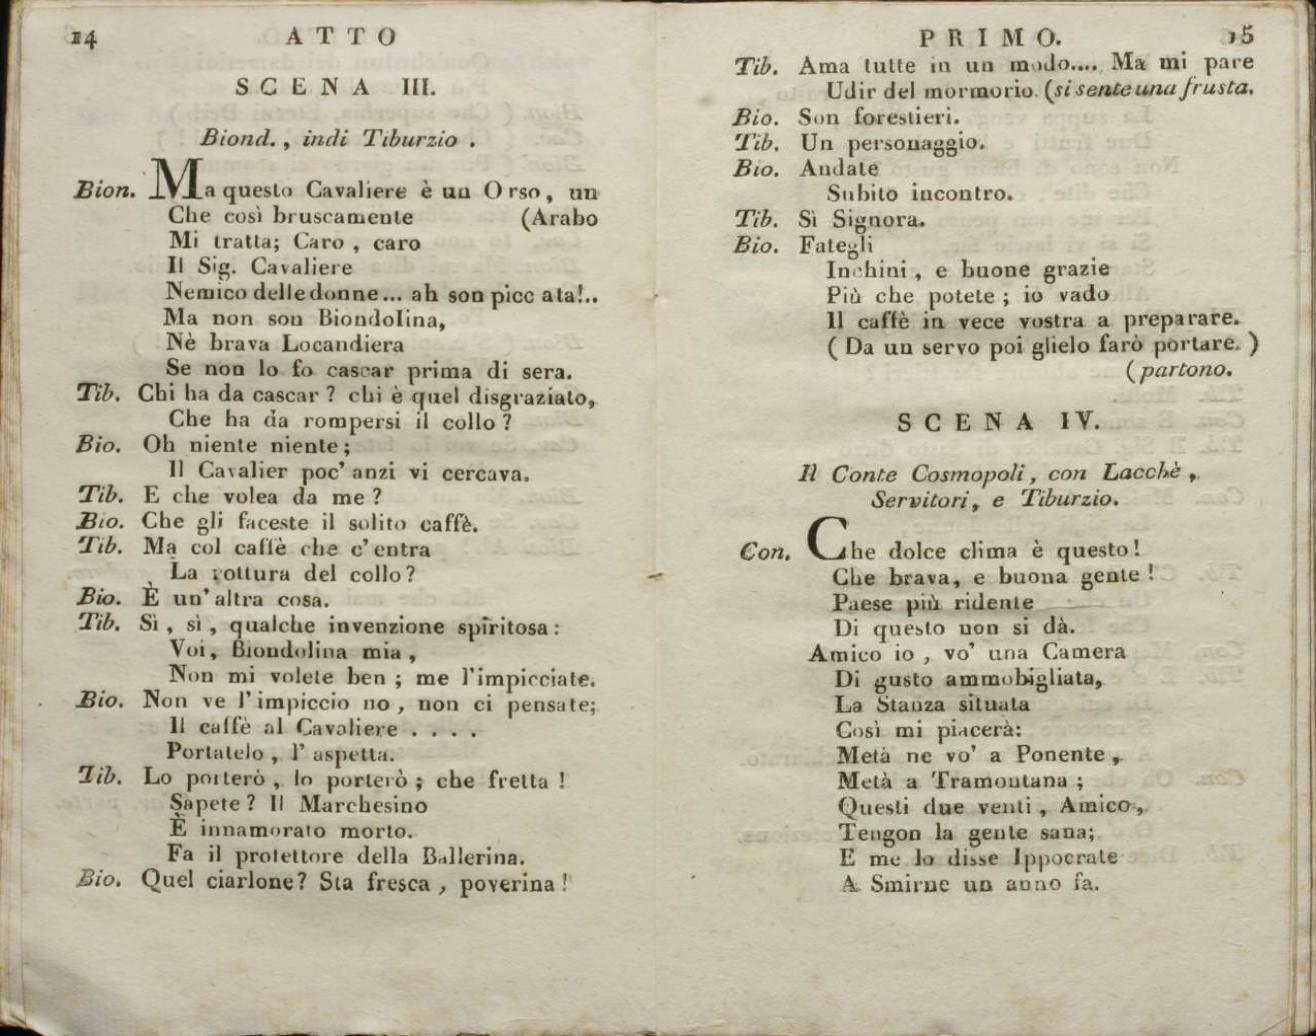 14
ATTO
SCENA III.
Biond., indi Tiburzio.
Bion. Ma questo Cavaliere è un Orso, un
Che così bruscamente (Arabo
Mi tratta; Caro, caro
Il Sig. Cavaliere
Nemico delle donne... ah son picc ata!..
Ma non son Biondolina,
Nè brava Locandiera
Se non lo fo cascar prima di sera.
Tib. Chi ha da cascar? chi è quel disgraziato,
Che ha da rompersi il collo?
Bio. Oh niente niente;
Il Cavalier poc' anzi vi cercava.
Tib. E che volea da me?
Bio. Che gli faceste il solito caffè.
Tib. Ma col caffè che c' entra
La rottura del collo?
Bio. È un' altra cosa.
Tib. Sì, sì, qualche invenzione spiritosa:
Voi, Biondolina mia,
Non mi volete ben; me l' impicciate.
Bio. Non ve l' impiccio no, non ci pensate;
Il caffè al Cavaliere ....
Portatelo, l' aspetta.
Tib. Lo porterò, lo porterò; che fretta!
Sapete? Il Marchesino
È innamorato morto.
Fa il protettore della Ballerina.
Bio. Quel ciarlone? Sta fresca, poverina!
PRIMO.
15
Tib. Ama tutte in un modo.... Ma mi pare
Udir del mormorio. (si sente una frusta.
Bio. Son forestieri.
Tib. Un personaggio.
Bio. Andate
Subito incontro.
Tib. Sì Signora.
Bio. Fategli
Inchini, e buone grazie
Più che potete; io vado
Il caffè in vece vostra a preparare.
(Da un servo poi glielo farò portare.)
(partono.
SCENA IV.
Il Conte Cosmopoli, con Lacchè,
Servitori, e Tiburzio.
Con. Che dolce clima è questo!
Che brava, e buona gente!
Paese più ridente
Di questo non si dà.
Amico io, vo' una Camera
Di gusto ammobigliata,
La Stanza situata
Così mi piacerà:
Metà ne vo' a Ponente,
Metà a Tramontana;
Questi due venti, Amico,
Tengon la gente sana;
E me lo disse Ippocrate
A Smirne un anno fa.